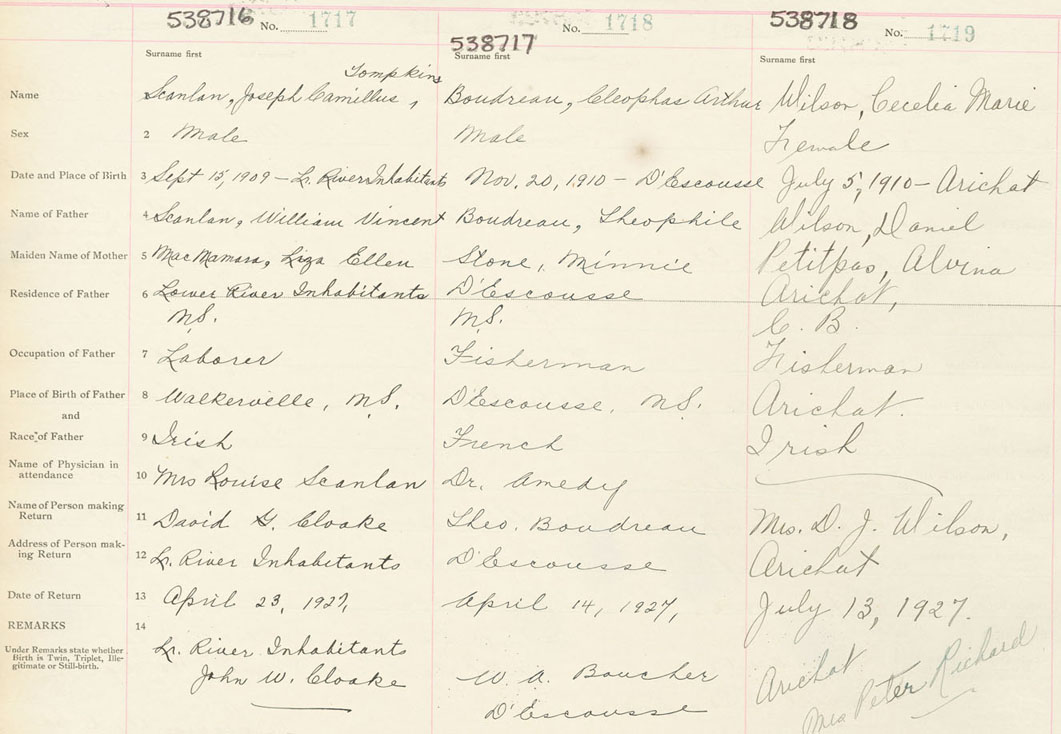 538716 No. 1717
538717 No. 1718
538718 No. 1719
Surname first Surname first Surname first
Tompkins
Name 1 Scanlan, Joseph Camillus, Boudreau, Cleophas Arthur Wilson, Cecelia Marie
Sex 2 Male Male Female
Date and Place of Birth 3 Sept 15, 1909 – Lr. River Inhabitants Nov. 20, 1910 – D'Escousse July 5, 1910 – Arichat
Name of Father 4 Scanlan, William Vincent Boudreau, Theophile Wilson, Daniel
Maiden Name of Mother 5 MacNamara, Liza Ellen Stone, Minnie Petitpas, Alvina
Residence of Father 6 Lower River Inhabitants D'Escousse Arichat,
N.S. N.S. C. B.
Occupation of Father 7 Laborer Fisherman Fisherman
Place of Birth of Father 8 Walkerville, N.S. D'Escousse, N.S. Arichat.
and
Race of Father 9 Irish French Irish
Name of Physician in
attendance 10 Mrs Louise Scanlan Dr. Amedy
Name of Person making
Return 11 David G. Cloake Theo. Boudreau Mrs. D. J. Wilson,
Address of Person mak-
ing Return 12 Lr. River Inhabitants D'Escousse Arichat
Date of Return 13 April 23, 1927, April 14, 1927, July 13, 1927.
REMARKS 14
Under Remarks state whether
Birth is Twin, Triplet, Ille-
gitimate or Still-birth.
Lr. River Inhabitants
John W. Cloake
W. A. Boucher
D'Escousse
Arichat
Mrs Peter Richard